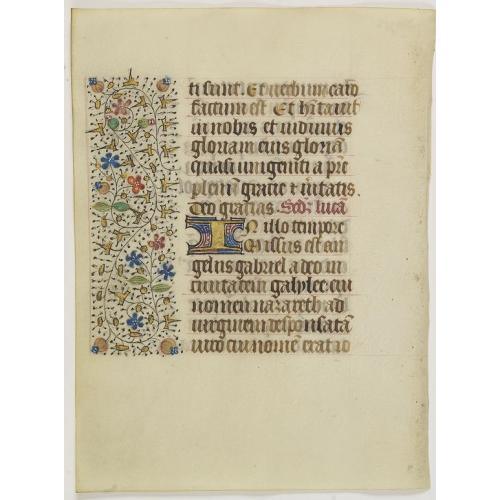 ti sunt. Et verbum caro
factum est Et hitauit
in nobis et vidimus
gloriam eius gloriã
quasi unigeniti a pre
plenũ gracie ⁊ uitatis.
Deo gracias. Scdʒ lucã
In illo tempore
Missus est an
gelus gabriel a deo in
ciuitatem galylee cui
nomen nazareth ad
uirginem desponsatã
uiro cui nomẽ erat io